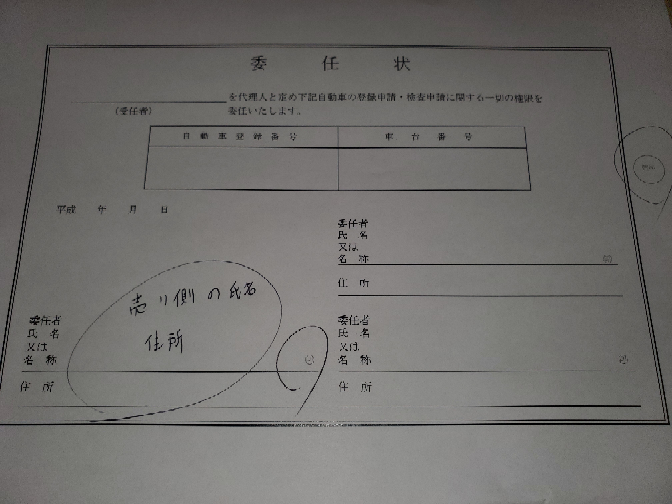 委任状
を代理人と定め下記自動車の登録申請・検査申請に関する一切の権限を
(委任者)
委任いたします。
自動車登録番号
車台番号
平成 年 月 日
委任者
氏名
又は
名称
住所
売り側の氏名
住所
委任者
氏名
又は
名称
住所
委任者
氏名
又は
名称
住所